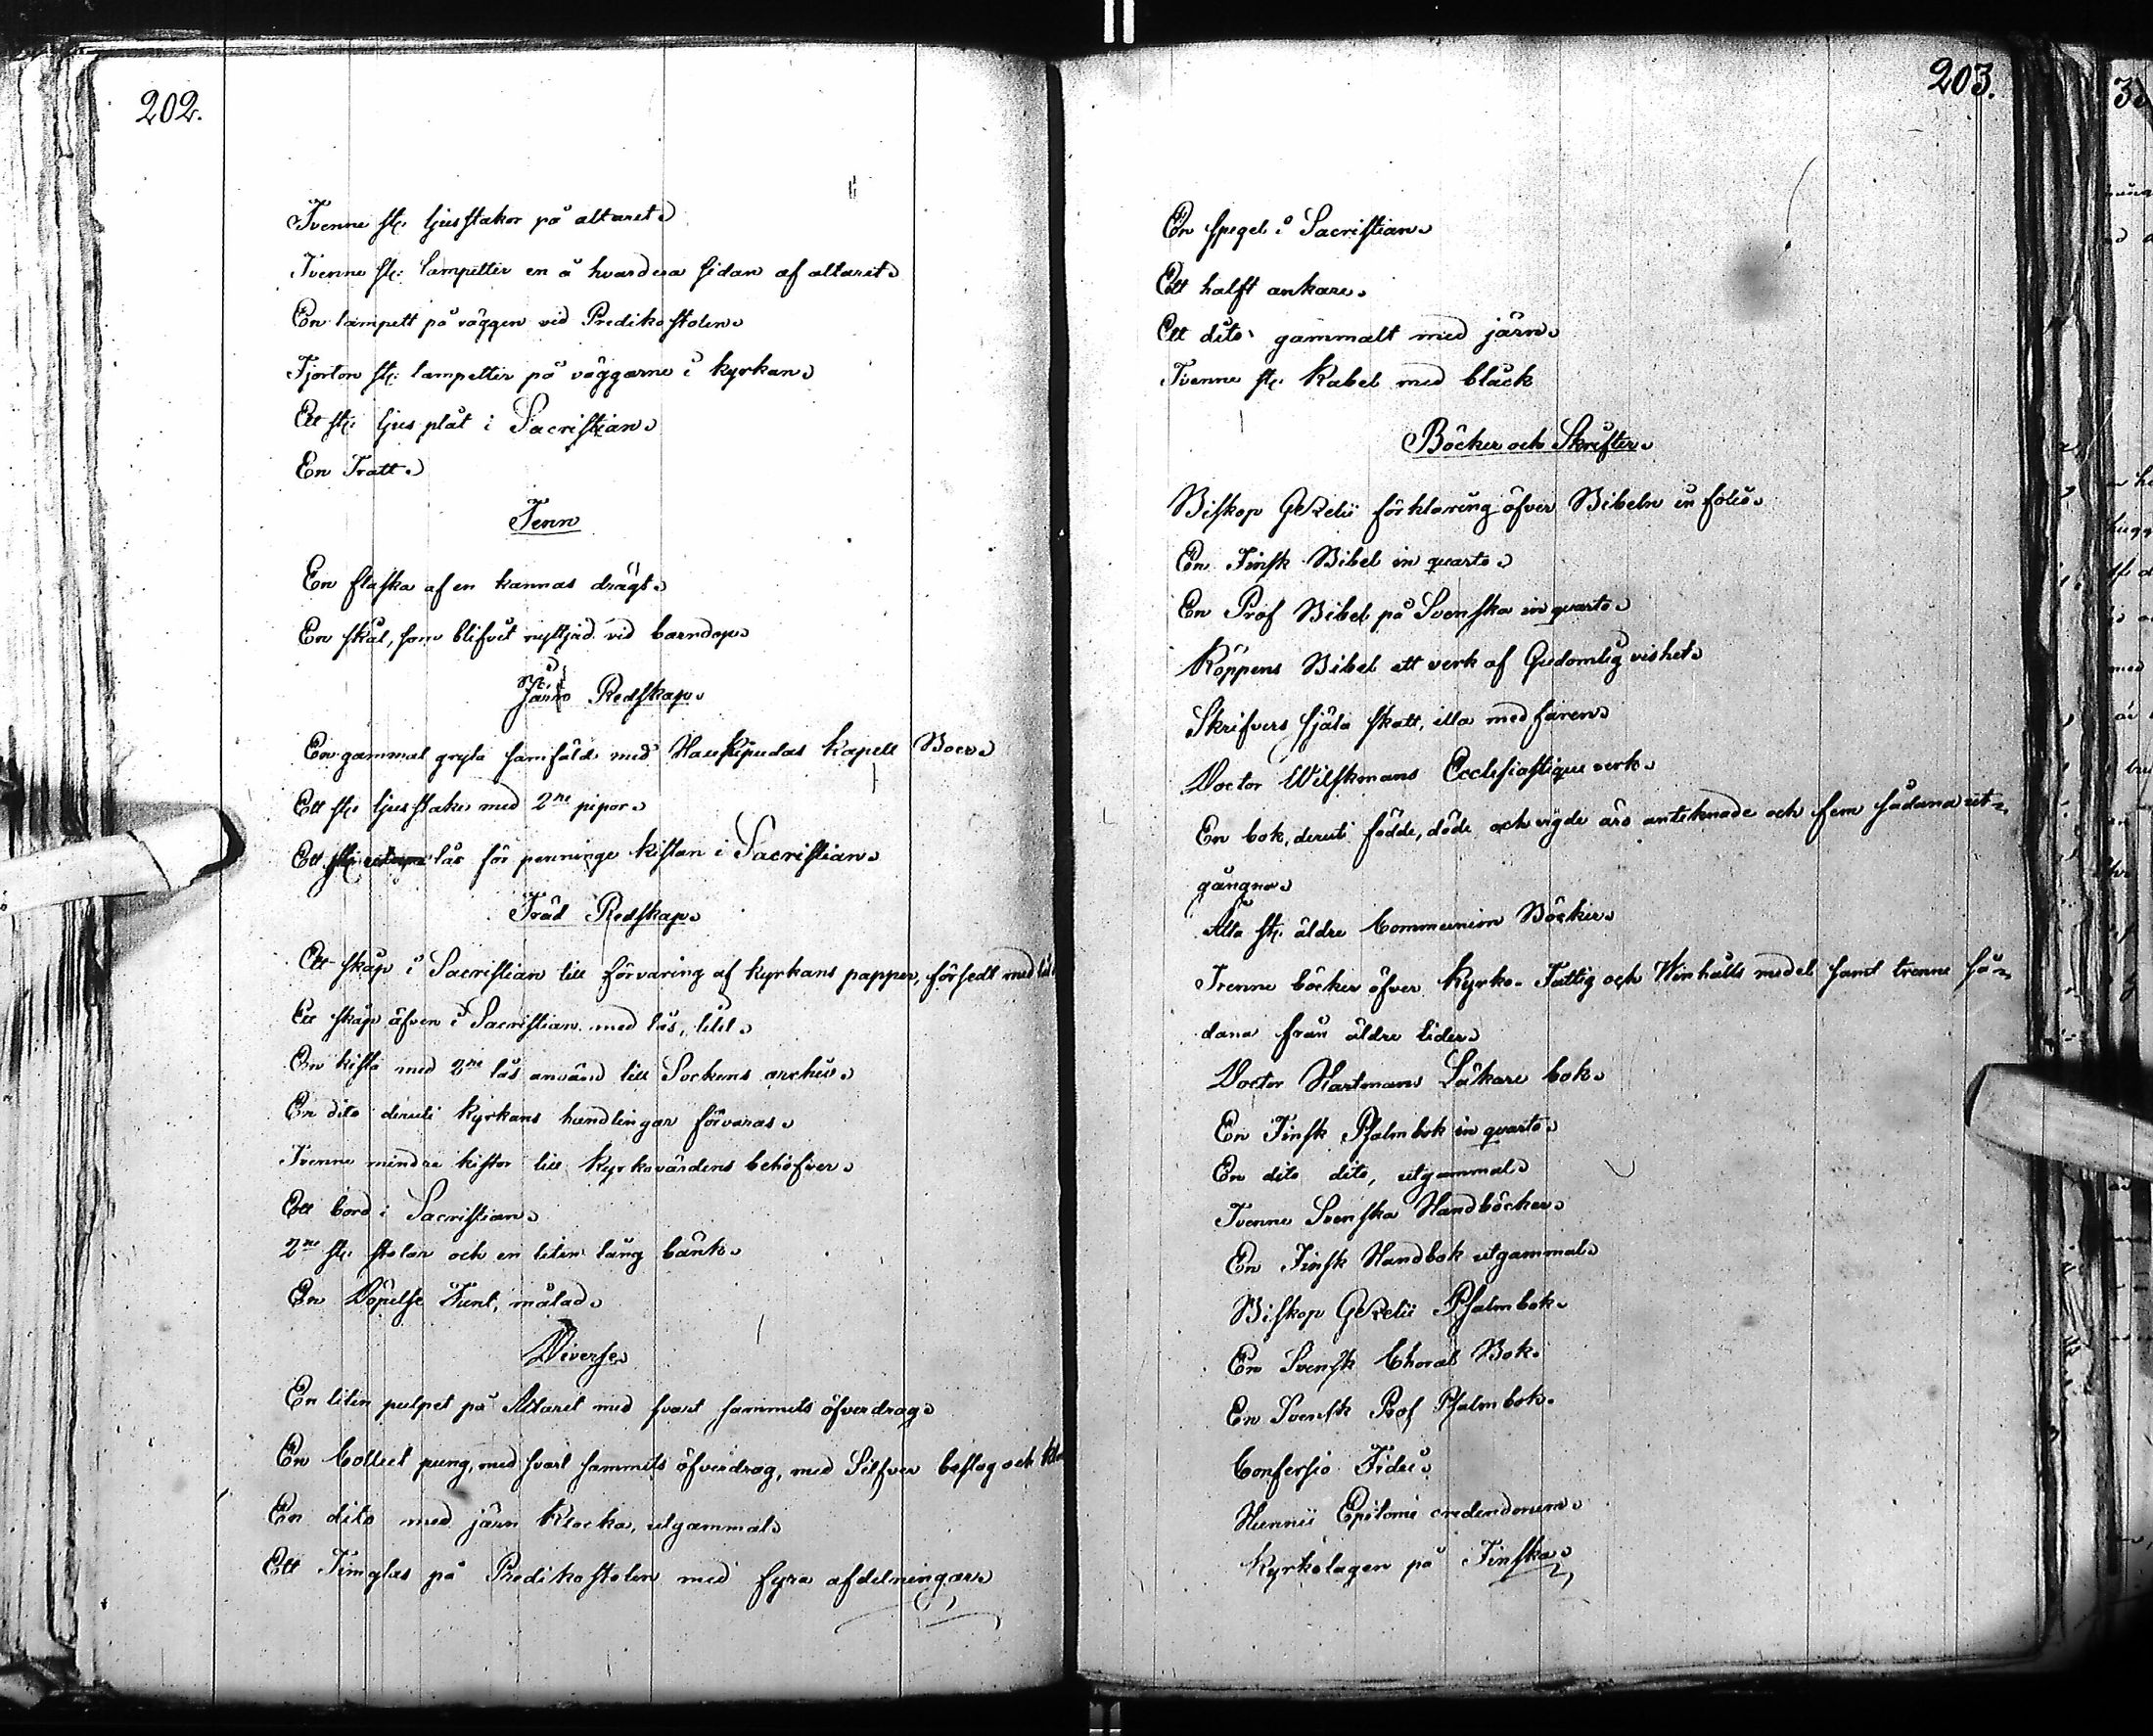 202.
Tvenne st: ljusstakor på altaret.
Tvenne st: lampetter en å hvardera sidan af altaret.
En lampett på väggen vid Predikostolen.
Fjorton st: lampetter på väggarne i kyrkan.
Ett st: ljusplåt i Sacristian.
En Tratt.
Tenn
En flaska af en kannas drägt.
En skål, som blifvit nyttjad vid barndop.
Järn Redskap.
En gammal gryta samfäld med Haukipudas Kapell Boer.
Ett st: ljusstake med 2ne pipor.
Ett lås för penninge kistan i Sacristian.
Träd Redskap.
Ett skåp i Sacristian till förvaring af kyrkans papper, försedt med
Ett skåp äfven i Sacristian med lås, litet.
En kista med 2ne lås använd till Sockens archiv.
En dito deruti kyrkans handlingar förvaras.
Tvenne mindre kistor till Kyrkovärdens behofver.
Ett bord i Sacristian.
2ne st: stolar och en liten lång bänk.
En Döpelse Funt, målad.
Diverse
En liten pulpet på Altaret med svart sammets öfverdrag.
En Collect pung, med svart sammets öfverdrag, med Silfver beslag och
En dito med järn Klocka, utgammal.
Ett Timglas på Predikostolen med fyra afdelningar.
203.
En spegel i Sacristian.
Ett halft ankare.
Ett dito gammalt med järn.
Tvenne st: Kabel med bläck
Böcker och Skrifter.
Biskop Gezelii förklaring öfver Bibeln in folio.
En Finsk Bibel in quarto.
En Prof Bibel på Svenska in quarto.
Köppens Bibel ett verk af Gudomlig vishet.
Skrifvers själa skatt, illa medfaren.
Doctor Wilskmans Ecclesiastique verk.
En bok, deruti födde, döde och vigde äro anteknade och fem sådana ut-
gångna.
Åtta st: äldre Communion Böcker.
Trenne böcker öfver Kyrko- Fattig och Winhålls medel samt trenne så-
dana från äldre tider.
Doctor Hartmans Läkare bok.
En Finsk Psalmbok in quarto.
En dito dito, utgammal.
Tvenne Svenska Handböcker.
En Finsk Handbok utgammal.
Biskop Gezelii Psalmbok.
En Svensk Choral Bok.
En Svensk Prof Psalmbok.
Confessio Fidei.
Hunnii Epitome credendorum.
Kyrkolagen på Finska.